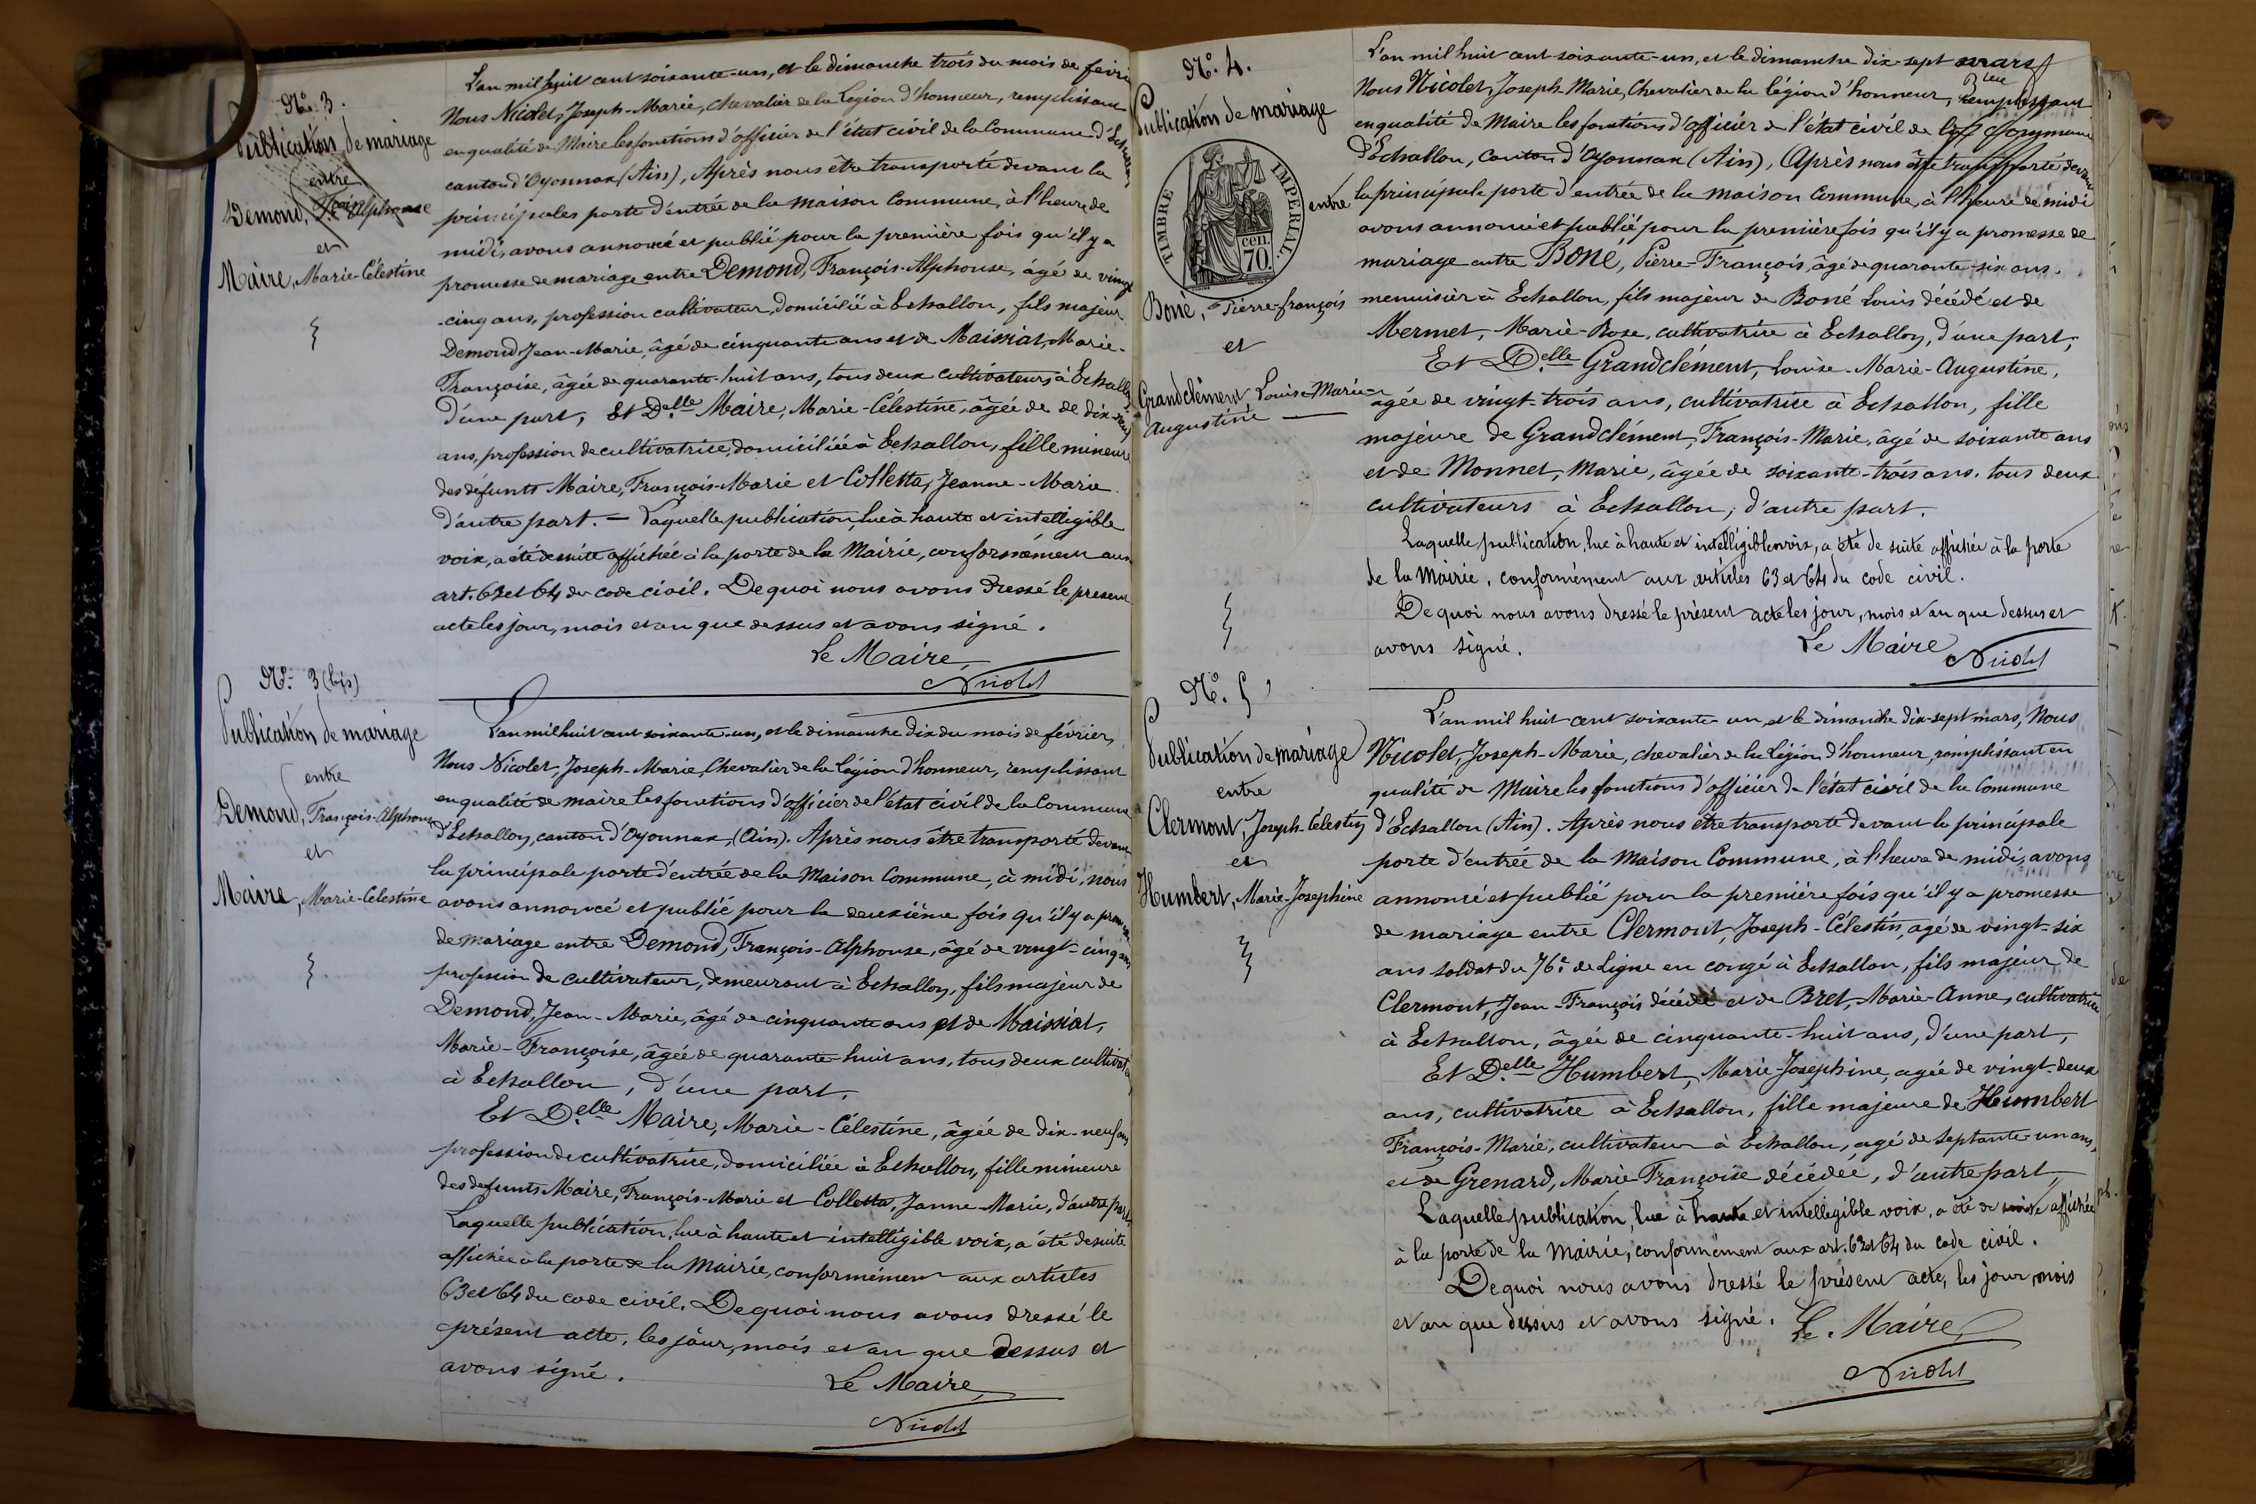 N° 3.
Publication de mariage
entre
Demond, Fcois Alphonse
et
Maire, Marie-Célestine
L'an mil huit cent soixante-un, et le dimanche trois du mois de févri
Nous Nicolet, Joseph-Marie, chevalier de la Légion d'honneur, remplissant
en qualité de Maire les fonctions d'officier de l'état civil de la Commune d'Echallon,
canton d'Oyonnax (Ain), Après nous être transporté devant la
principales porte d'entrée de la maison Commune, à l'heure de
midi, avons annoncé et publié pour la première fois qu'il y a
promesse de mariage entre Demond, François-Alphonse, âgé de vingt
-cinq ans, profession cultivateur, domicilié à Echallon, fils majeur
Demond Jean-Marie, âgé de cinquante ans et de Maissiat, Marie-
Françoise, âgée de quarante-huit ans, tous deux cultivateurs à Echallon
d'une part, Et Delle Maire, Marie-Célestine, âgée de de dix-neuf
ans, profession de cultivatrice, domiciliée à Echallon, fille mineure
des défunts Maire, François-Marie et Colletta, Jeanne-Marie
d'autre part. — Laquelle publication, lue à haute et intelligible
voix, a été de suite affichée à la porte de la Mairie, conformément aux
art. 63 et 64 du code civil. De quoi nous avons dressé le présent
acte les jour, mois et an que dessus et avons signé.
Le Maire,
Nicolet
N° 3 (bis)
Publication de mariage
entre
Demond, François-Alphonse
et
Maire, Marie-Célestine
L'an mil huit cent soixante-un, et le dimanche dix du mois de février,
Nous Nicolet, Joseph-Marie, Chevalier de la Légion d'honneur, remplissant
en qualité de maire les fonctions d'officier de l'état civil de la Commune
d'Echallon, canton d'Oyonnax, (Ain). Après nous être transporté devant
la principale porte d'entrée de la Maison Commune, à midi, nous
avons annoncé et publié pour la deuxième fois qu'il y a promesse
de mariage entre Demond, François-Alphonse, âgé de vingt-cinq ans
profession de cultivateur, demeurant à Echallon, fils majeur de
Demond, Jean-Marie, âgé de cinquante ans et de Maissiat,
Marie-Françoise, âgée de quarante-huit ans, tous deux cultivat
à Echallon, d'une part,
Et Delle Maire, Marie-Célestine, âgée de dix-neuf ans
profession de cultivatrice, domiciliée à Echallon, fille mineure
des defunts Maire, François-Marie et Colletta, Janne-Marie, d'autre part,
Laquelle publication, lue à haute et intelligible voix, a été de suite
affichée à la porte de la Mairie, conformément aux articles
63 et 64 du code civil. De quoi nous avons dressé le
présent acte, les jour, mois et an que dessus et
avons signé.
Le Maire,
Nicolet
N° 4.
Publication de mariage
TIMBRE IMPERIAL
cen.
70
entre
Boné, Pierre-françois
et
Grandclément Louise-Marie-
Augustine
L'an mil huit cent soixante-un, et le dimanche dix-sept mars
Nous Nicolet, Joseph-Marie, Chevalier de la légion d'honneur, Remplissant
en qualité de Maire les fonctions d'officier de l'état civil de la Commune
d'Echallon, canton d'Oyonnax (Ain), Après nous être transporté devant
la principale porte d'entrée de la maison Commune, à l'heure de midi
avons annoncé et publié pour la première fois qu'il y a promesse de
mariage entre Boné, Pierre-François, âgé de quarante-six ans.
menuisier à Echallon, fils majeur de Boné Louis décédé et de
Mermet, Marie-Rose, cultivatrice à Echallon, d'une part,
Et Delle Grandclément, Louise-Marie-Augustine,
agée de vingt-trois ans, cultivatrice à Echallon, fille
majeure de Grandclément, François-Marie, âgé de soixante ans
et de Monnet, Marie, âgée de soixante-trois ans, tous deux
cultivateurs à Echallon, d'autre part.
Laquelle publication, lue à haute et intelligible voix, a été de suite affichée à la porte
de la Mairie, conformément aux articles 63 et 64 du code civil.
De quoi nous avons dressé le présent acte les jour, mois et an que dessus et
avons signé.
Le Maire
Nicolet
N° 5
Publication de mariage
entre
Clermont, Joseph-Célestin
et
Humbert, Marie-Josephine
L'an mil huit cent soixante-un, et le dimanche dix-sept mars, Nous
Nicolet, Joseph-Marie, chevalier de la Légion d'honneur, remplissant en
qualité de Maire les fonctions d'officier de l'état civil de la Commune
d'Echallon (Ain). Après nous être transporté devant la principale
porte d'entrée de la Maison Commune, à l'heure de midi, avons
annoncé et publié pour la première fois qu'il y a promesse
de mariage entre Clermont, Joseph-Célestin, agé de vingt-six
ans soldat du 76e de Ligne en congé à Echallon, fils majeur de
Clermont, Jean-François décédé et de Bret, Marie-Anne, cultivatrice
à Echallon, âgée de cinquante-huit ans, d'une part,
Et Delle Humbert, Marie-Josephine, agée de vingt-deux
ans, cultivatrice à Echallon, fille majeure de Humbert
François-Marie, cultivateur à Echallon, agé de septante-un ans,
et de Grenard, Marie Françoise décédée, d'autre part,
Laquelle publication, lue à haute et intelligible voix, a été de suite affichée
à la porte de la Mairie, conformément aux art. 63 et 64 du code civil.
De quoi nous avons dressé le présent acte, les jour, mois
et an que dessus et avons signé.
Le Maire,
Nicolet